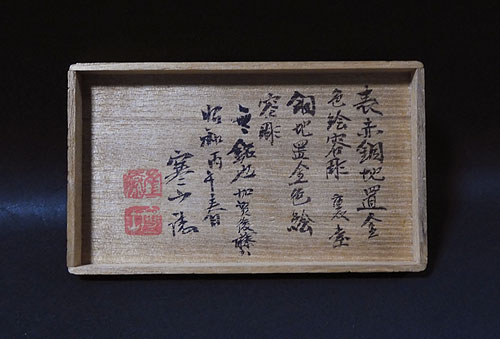 表赤銅地置金
色絵容彫 裏素
銅地置金色絵
容彫
無銘也加賀後藤
昭和丙午春日
寒山誌